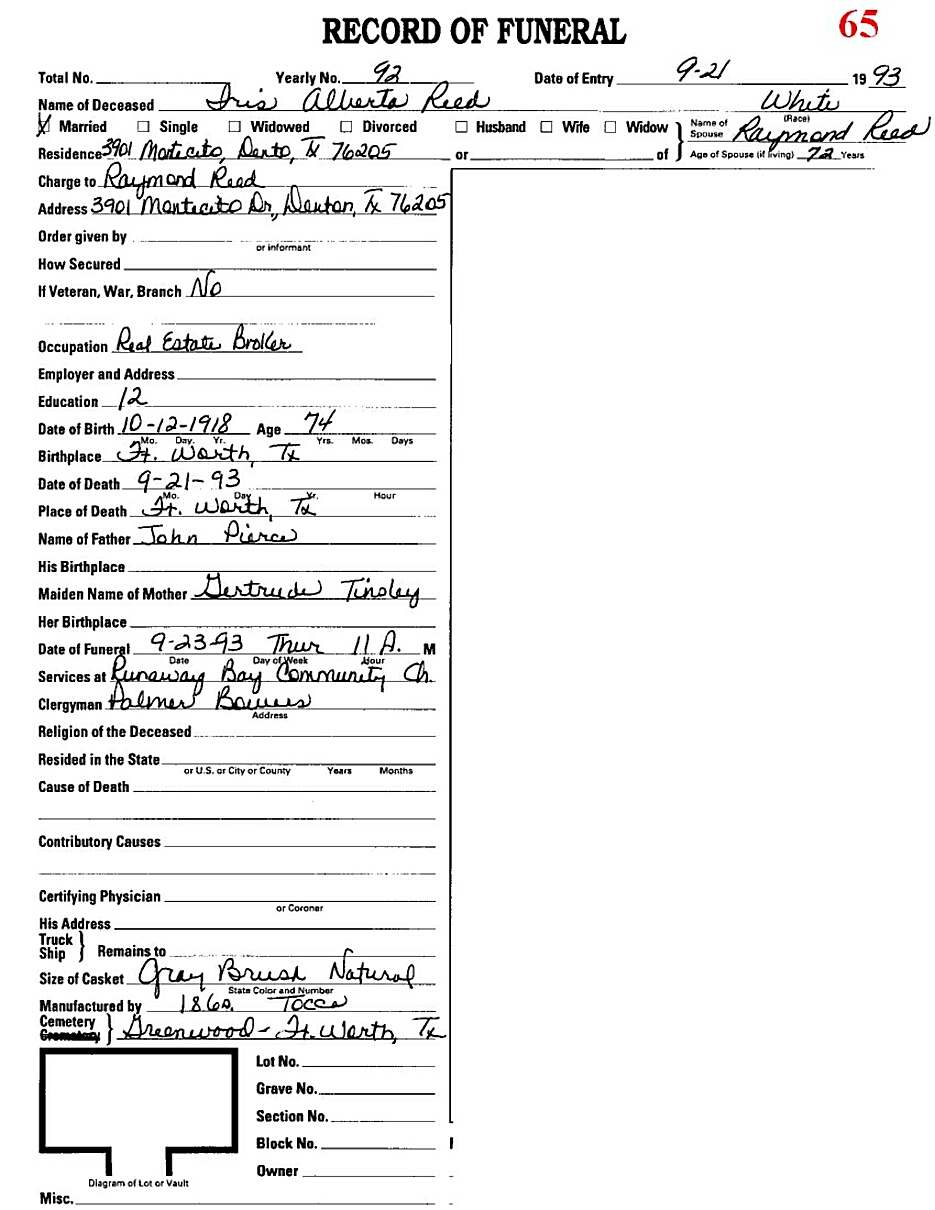 RECORD OF FUNERAL 65
Total No. Yearly No. 92 Date of Entry 9-21 19 93
Name of Deceased Iris Alberta Reed White
(Race)
Married Single Widowed Divorced Husband Wife Widow Name of Spouse Raymond Reed
Residence 3901 Montecito, Dento, Tx 76205 or of Age of Spouse (if living) 72 Years
Charge to Raymond Reed
Address 3901 Montecito Dr, Denton, Tx 76205
Order given by
or informant
How Secured
If Veteran, War, Branch No
Occupation Real Estate Broker
Employer and Address
Education 12
Date of Birth 10-12-1918 Age 74
Mo. Day. Yr. Yrs. Mos. Days
Birthplace Ft. Worth, Tx
Date of Death 9-21-93
Mo. Day Yr. Hour
Place of Death Ft. Worth, Tx
Name of Father John Pierce
His Birthplace
Maiden Name of Mother Gertrude Tinsley
Her Birthplace
Date of Funeral 9-23-93 Thur 11 A. M
Date Day of Week Hour
Services at Runaway Bay Community Ch.
Clergyman Palmer Bowers
Address
Religion of the Deceased
Resided in the State
or U.S. or City or County Years Months
Cause of Death
Contributory Causes
Certifying Physician
or Coroner
His Address
Truck
Ship Remains to
Size of Casket Gray Brush Natural
State Color and Number
Manufactured by 18 Ga. Tocca
Cemetery
Crematory Greenwood - Ft. Worth, Tx
Lot No.
Grave No.
Section No.
Block No.
Owner
Diagram of Lot or Vault
Misc.